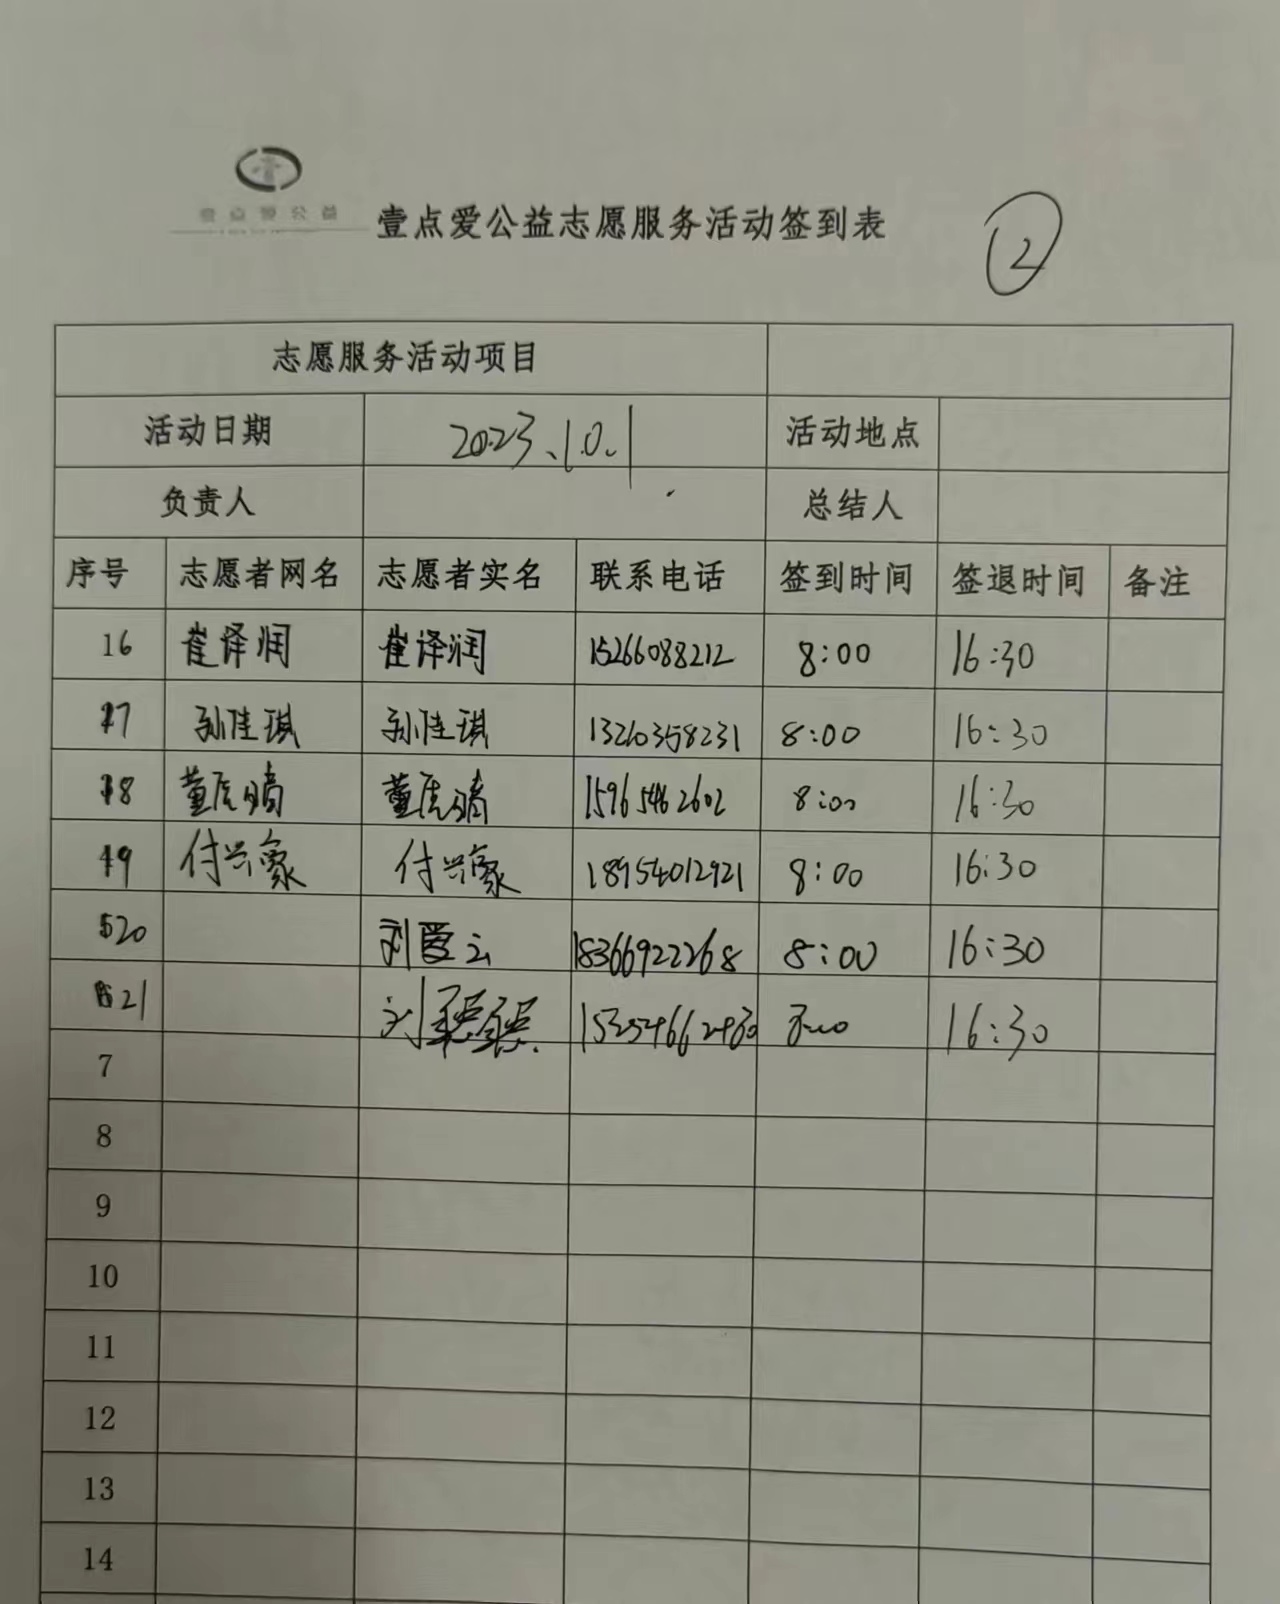 壹点爱公益
壹点爱公益志愿服务活动签到表
2
志愿服务活动项目
活动日期 2023.10.1 活动地点
负责人 总结人
序号 志愿者网名 志愿者实名 联系电话 签到时间 签退时间 备注
16 崔译润 崔译润 15266088212 8:00 16:30
17 孙佳琪 孙佳琪 13260358231 8:00 16:30
18 8:00 16:30
19 付兴豪 付兴豪 18954012921 8:00 16:30
20 刘爱云 18366922268 8:00 16:30
21 刘 16:30
7
8
9
10
11
12
13
14